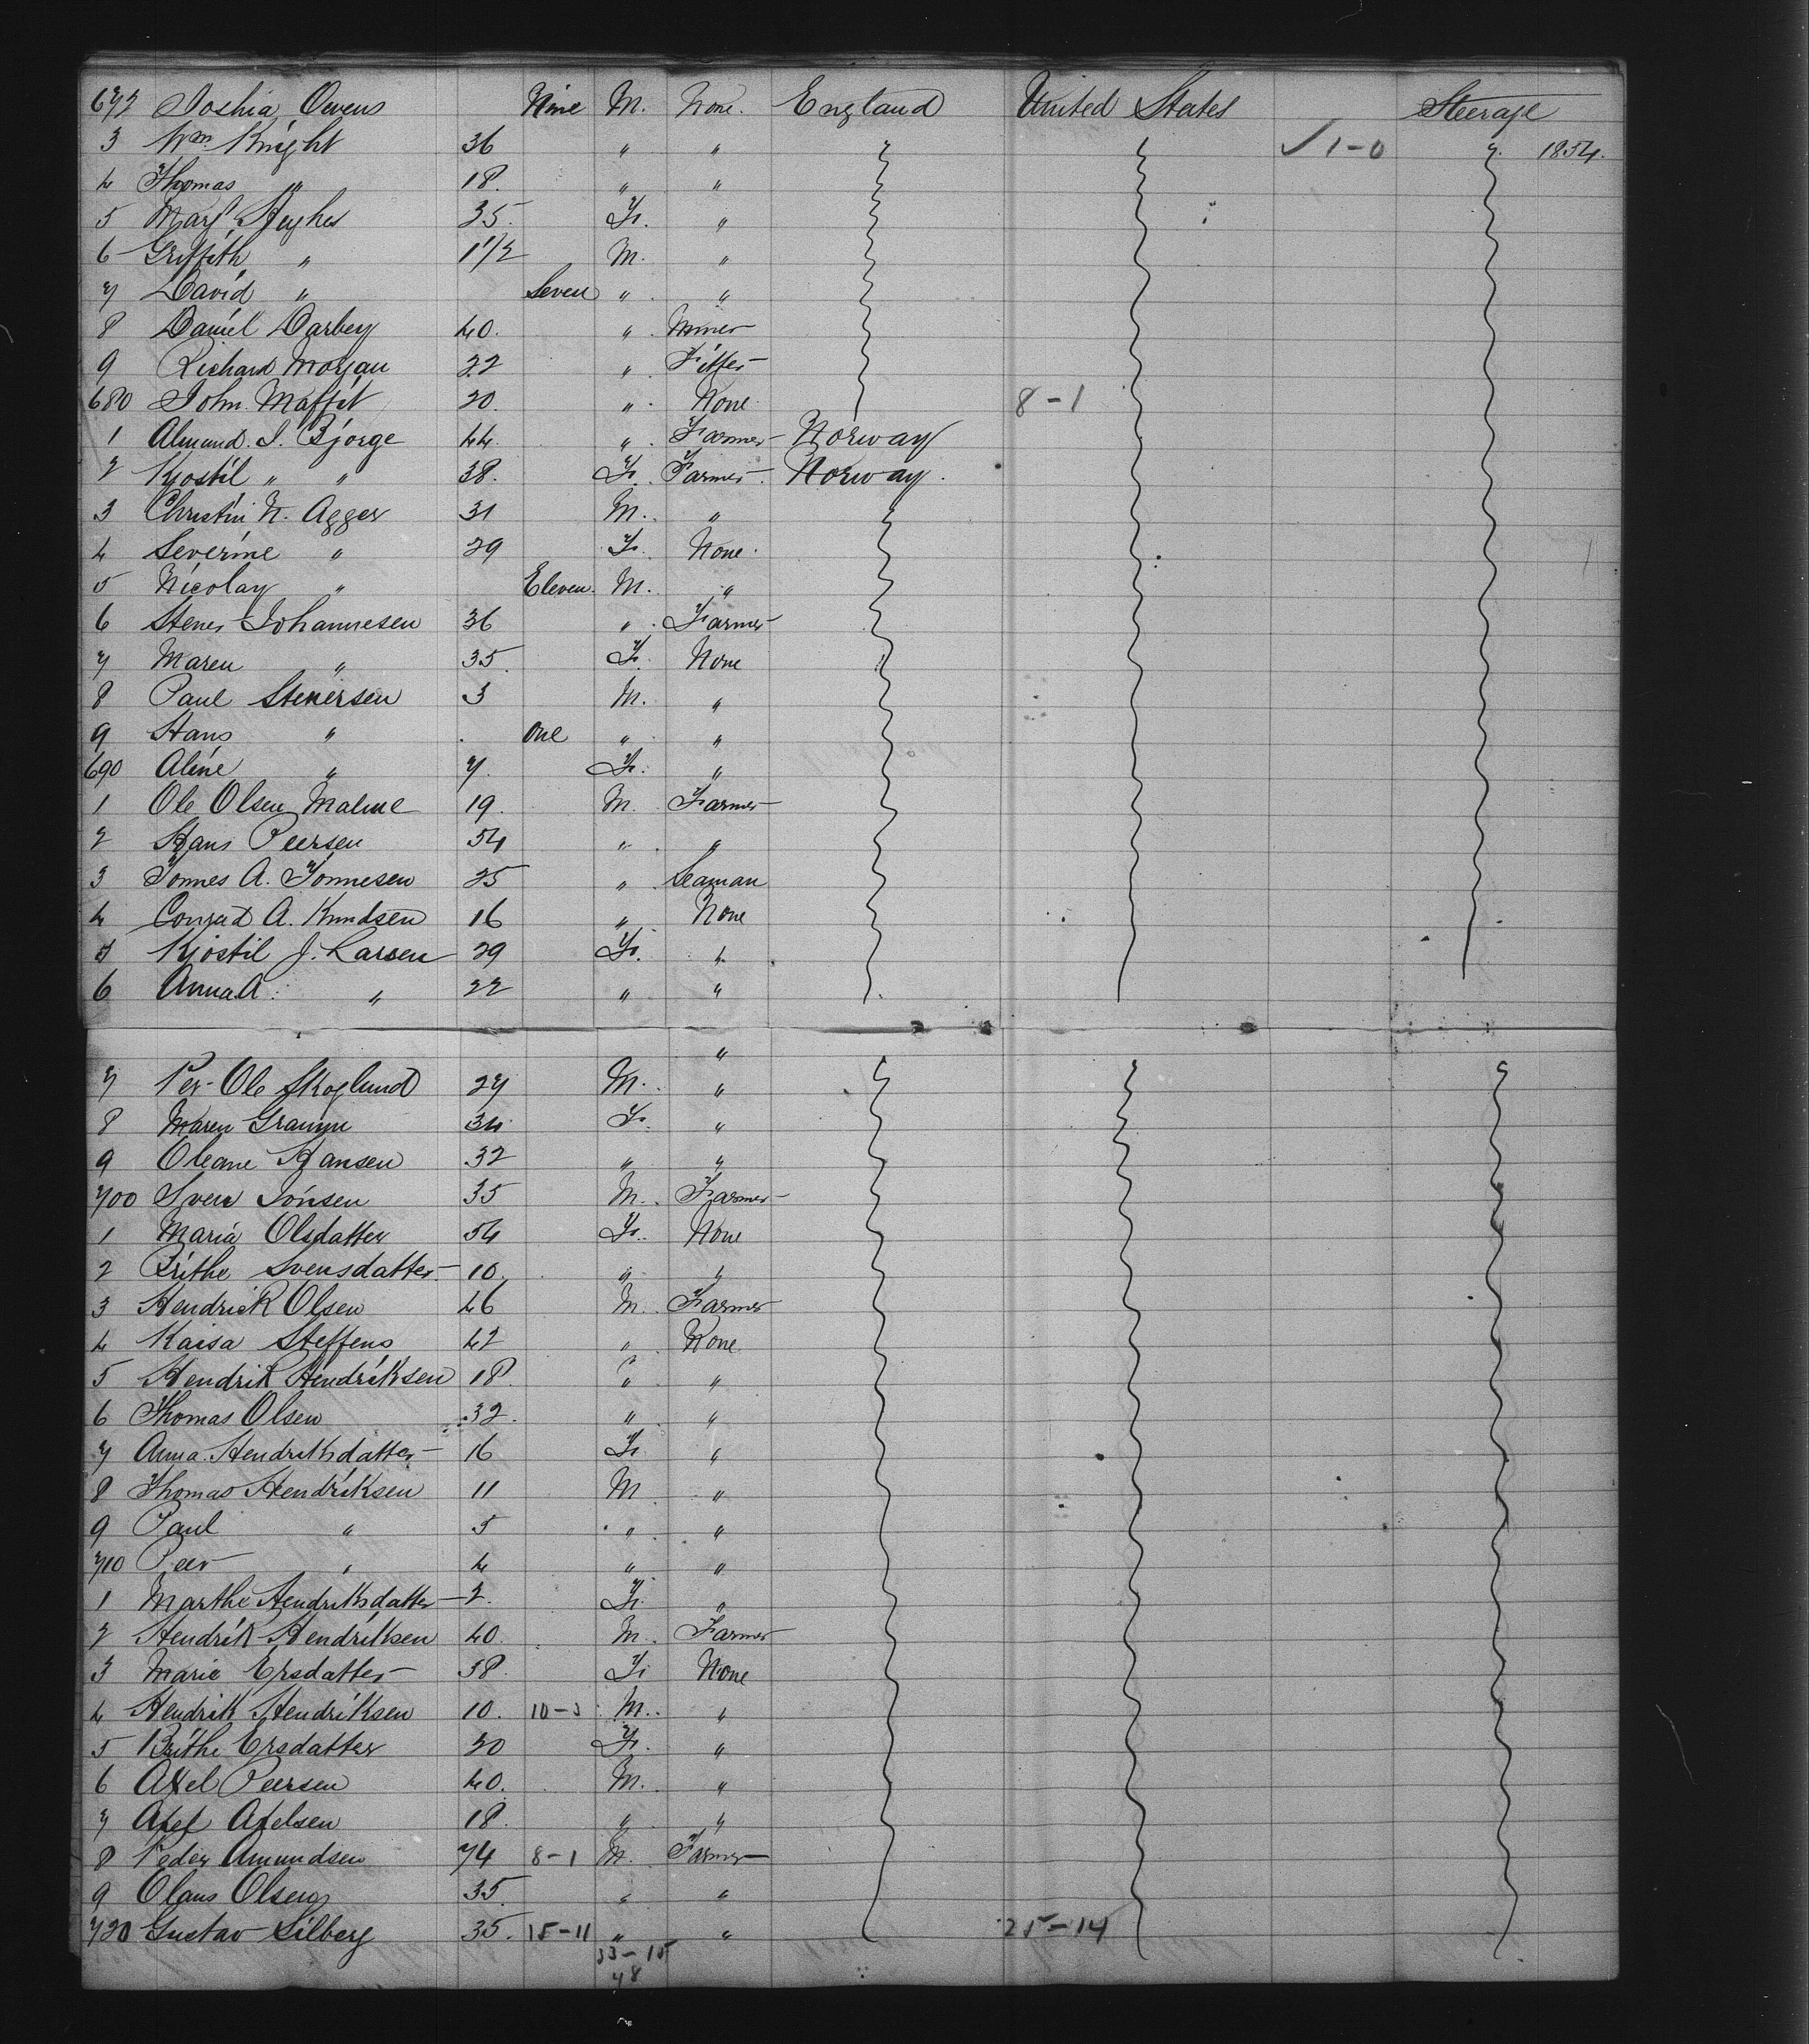 672 Joshia Owens Nine M. None. England United States Steerage
3 Wm. Knight 36 " " " " ✓ 1-0 " 1854.
4 Thomas " 18. " "
5 Margt Hughes 35. F. "
6 Griffith " 1 1/2 M. "
7 David " Seven " "
8 Daniel Darbey 40. " Miner
9 Richard Morgan 22 " Fitter
680 John Maffit 20. " None. 8-1
1 Almund. I. Bjorge 44. " Farmer Norway
2 Kjostil " " 38. F. Farmer Norway.
3 Christin N. Agger 31 M. " "
4 Severine " 29 F. None.
5 Nicolay " Eleven. M. "
6 Stener Johannesen 36 " Farmer
7 Maren " 35. F. None
8 Paul Stenersen 3 M. "
9 Hans " One " "
690 Aline " 7. F. "
1 Ole Olsen Malme 19. M. Farmer
2 Hans Peersen 54 " "
3 Tonnes A. Tonnesen 25 " Seaman
4 Conrad A. Knudsen 16 " None
5 Kjostil J. Larsen 29 F. "
6 Anna A. " 22 " "
"
7 Per-Ole Skoglund 27 M. " " " "
8 Maren Gramm 34 F. "
9 Oleane Hansen 32 " "
700 Sven Jonsen 35 M. Farmer
1 Maria Olsdatter 54 F. None
2 Brithe Svensdatter 10. " "
3 Hendrick Olsen 46 M. Farmer
4 Kaisa Steffens 42 " None
5 Hendrik Hendriksen 18. " "
6 Thomas Olsen 32. " "
7 Anna. Hendriksdatter 16 F. "
8 Thomas Hendriksen 11 M "
9 Paul " 5 " "
710 Peer " 4 " "
1 Marthe Hendriksdatter 2. F. "
2 Hendrik Hendriksen 40. M. Farmer
3 Marie Ersdatter 38. F. None
4 Hendrik Hendriksen 10. 10-3 M. "
5 Brithe Ersdatter 20 F. "
6 Axel Peersen 40. M. "
7 Axel Axelsen 18. " "
8 Peder Amundsen 74 8-1 M. Farmer
9 Olaus Olsen 35 " "
720 Gustav Silberg 35. 15-11 " " 25-14
33-15
48